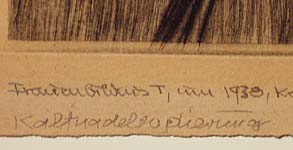 Frauenbildnis I, um 1938, Ka
Kaltnadelradierung